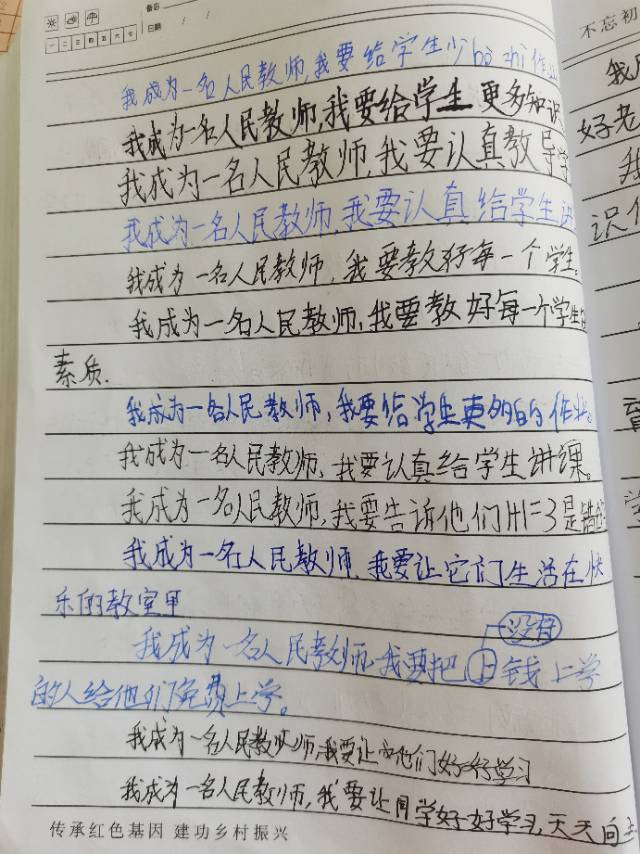 备忘
日期
一 二 三 四 五 六 日
不忘初
我成为一名人民教师,我要给学生少bò zhi作业
我成为一名人民教师,我要给学生更多知识
我成为一名人民教师,我要认真教导学
我成为一名人民教师,我要认真给学生讲
我成为一名人民教师,我要教好每一个学生。
我成为一名人民教师,我要教好每一个学生的
素质.
我成为一名人民教师,我要给学生更多的作业。
我成为一名人民教师,我要认真给学生讲课。
我成为一名人民教师,我要告诉他们1+1=3是错的
我成为一名人民教师,我要让它们生活在快
乐的教室里
没有
我成为一名人民教师,我要把上钱上学
的人给他们免费上学。
我成为一名人民教师,我要让他们好好学习
我成为一名人民教师,我要让同学好好学习,天天向上
传承红色基因 建功乡村振兴
我
好老
我
识